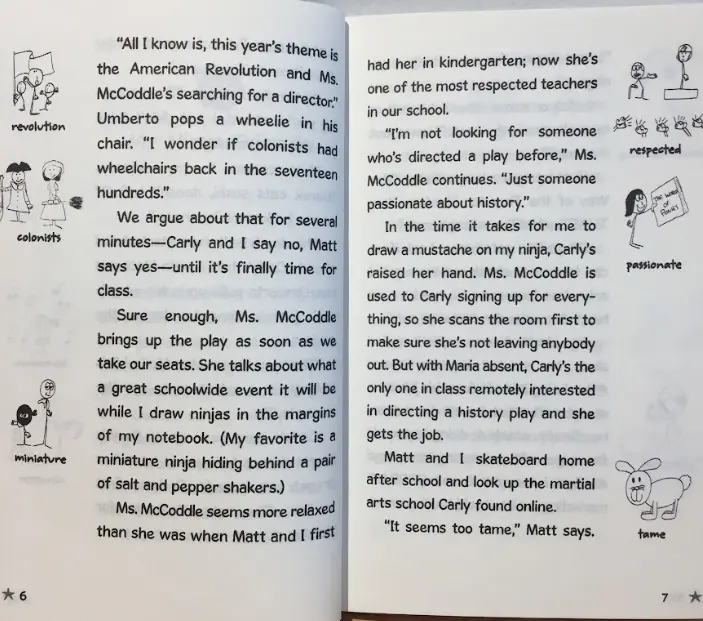 "All I know is, this year's theme is
the American Revolution and Ms.
McCoddle's searching for a director."
Umberto pops a wheelie in his
chair. "I wonder if colonists had
wheelchairs back in the seventeen
hundreds."
We argue about that for several
minutes—Carly and I say no, Matt
says yes—until it's finally time for
class.
Sure enough, Ms. McCoddle
brings up the play as soon as we
take our seats. She talks about what
a great schoolwide event it will be
while I draw ninjas in the margins
of my notebook. (My favorite is a
miniature ninja hiding behind a pair
of salt and pepper shakers.)
Ms. McCoddle seems more relaxed
than she was when Matt and I first
revolution
colonists
miniature
6
had her in kindergarten; now she's
one of the most respected teachers
in our school.
"I'm not looking for someone
who's directed a play before," Ms.
McCoddle continues. "Just someone
passionate about history."
In the time it takes for me to
draw a mustache on my ninja, Carly's
raised her hand. Ms. McCoddle is
used to Carly signing up for every-
thing, so she scans the room first to
make sure she's not leaving anybody
out. But with Maria absent, Carly's the
only one in class remotely interested
in directing a history play and she
gets the job.
Matt and I skateboard home
after school and look up the martial
arts school Carly found online.
"It seems too tame," Matt says.
respected
THE WORLD
OF
PONIES
passionate
tame
7